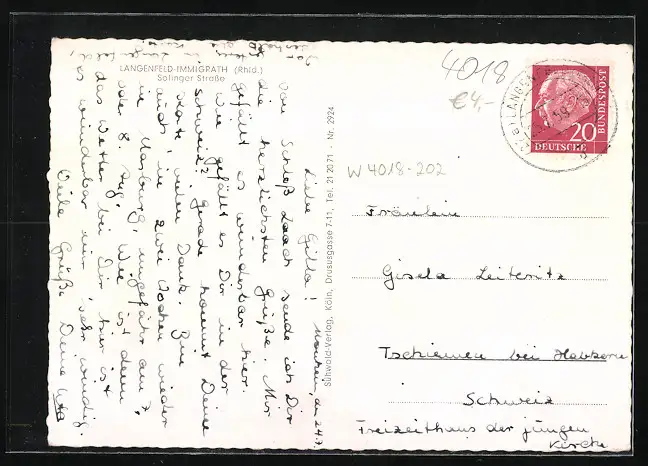 LANGENFELD-IMMIGRATH (Rhld.)
Solinger Straße
4018
€4,-
W 4018-202
20
DEUTSCHE
BUNDESPOST
Monheim, den 24.7.
Liebe Gilla!
Von Schloß Laach sende ich Dir
die herzlichsten Grüße. Mir
gefällt es wunderbar hier.
Wie gefällt es Dir in der
Schweiz? Gerade kommt Deine
Karte, vielen Dank. Bin
auch in zwei Wochen wieder
in Marburg, ungefähr am 7.
oder 8. Aug. Wie ist denn
das Wetter bei Dir, hier ist
es wunderbar nur sehr windig.
Viele Grüße Deine Uta
Südwold-Verlag, Köln, Drususgasse 7-11, Tel. 212071 - Nr. 2924
Fräulein
Gisela Leiteritz
Tschiemen bei Habkern
Schweiz
Freizeithaus der jungen
Kirche